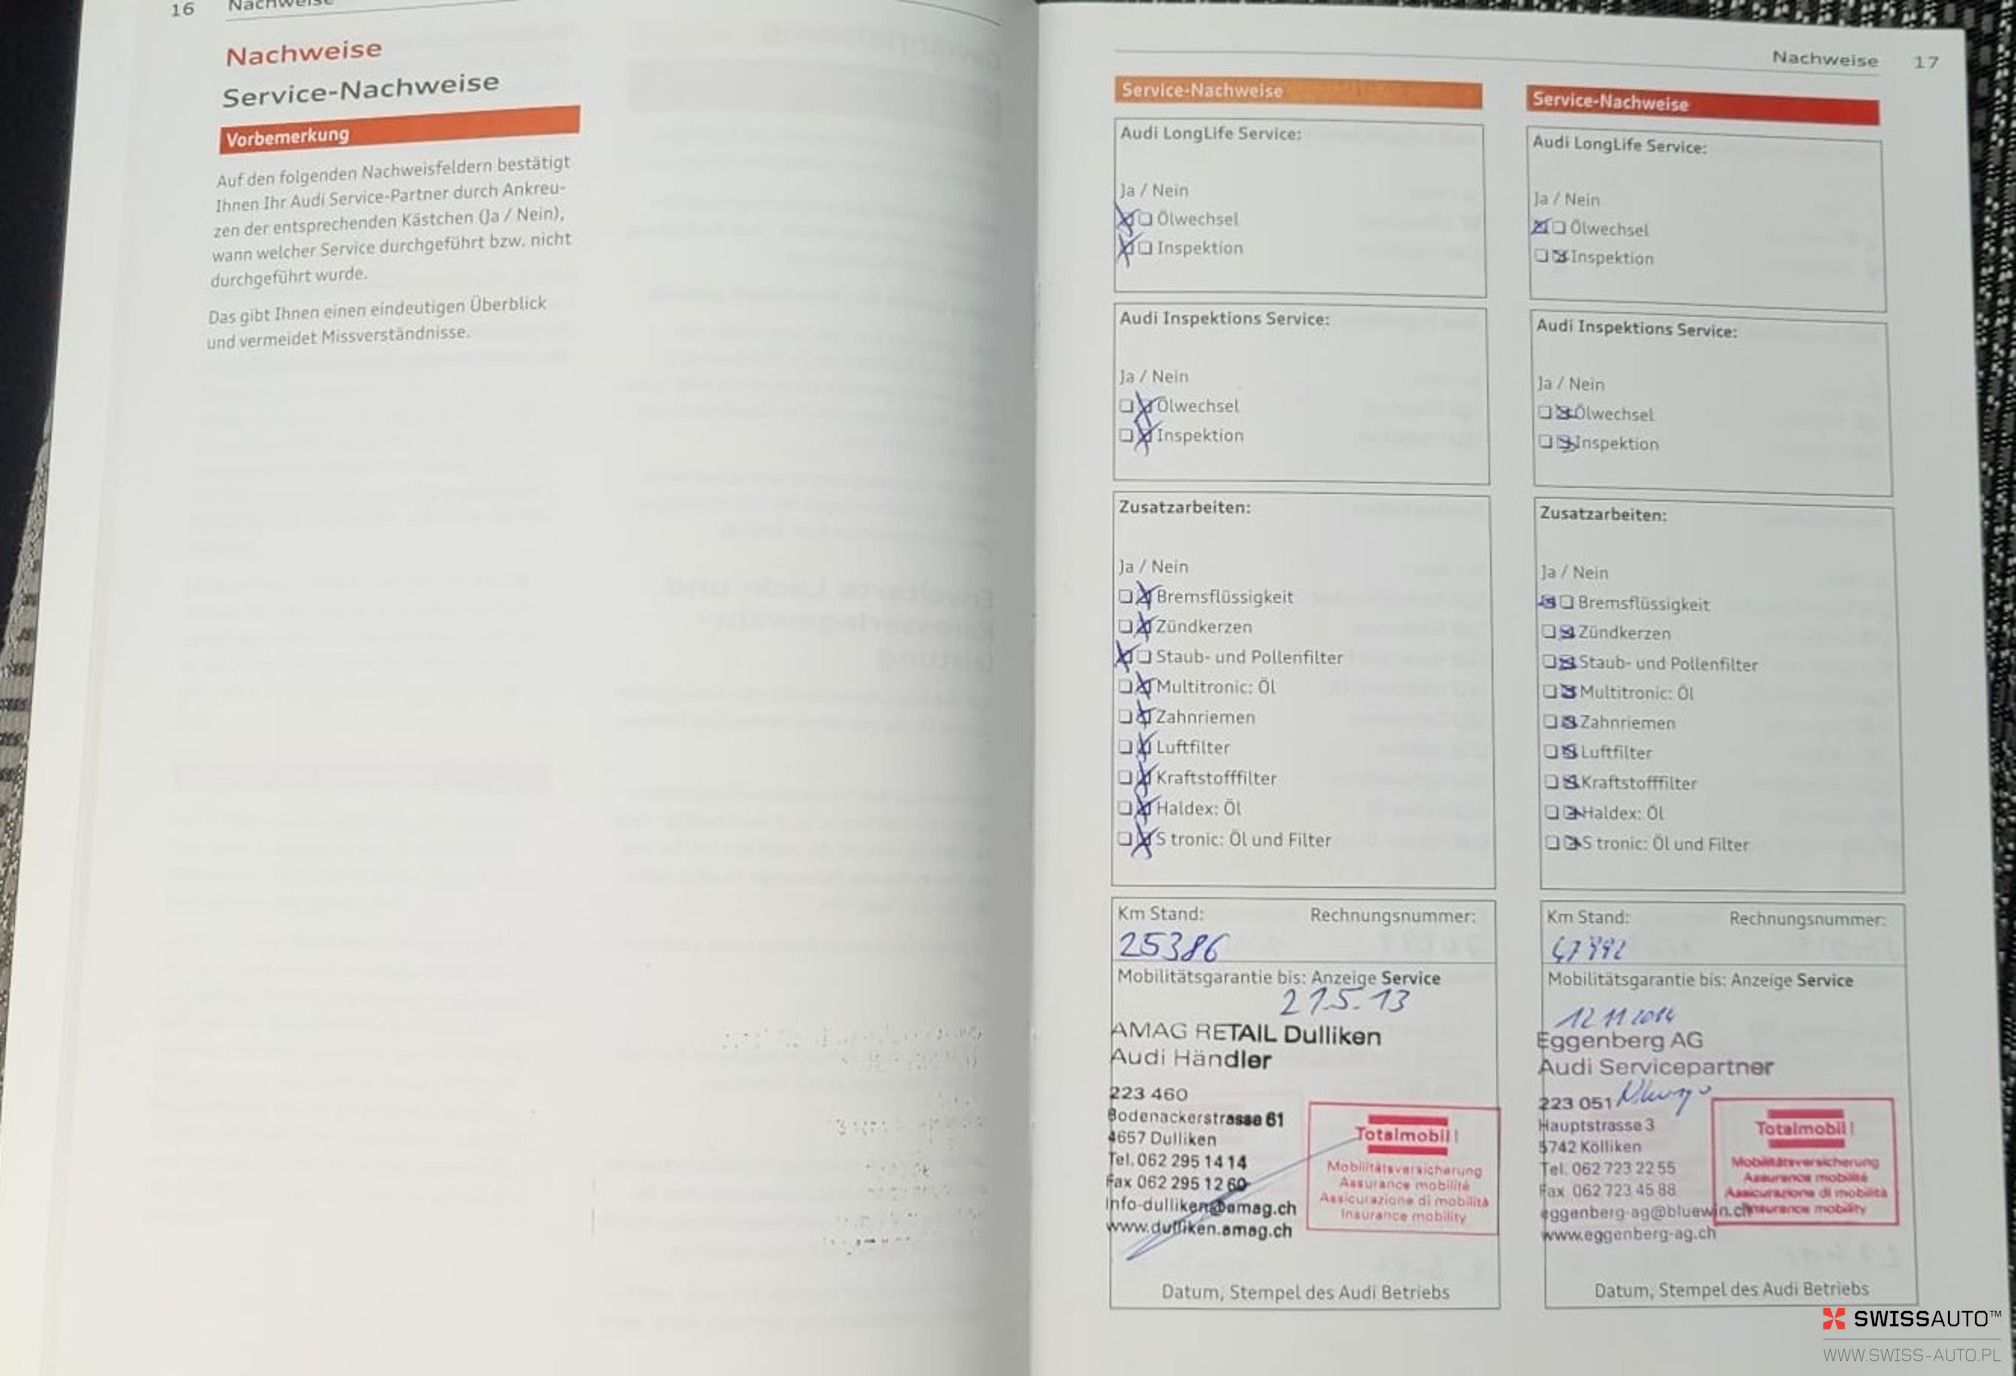 16 Nachweise
Nachweise
Service-Nachweise
Vorbemerkung
Auf den folgenden Nachweisfeldern bestätigt
Ihnen Ihr Audi Service-Partner durch Ankreu-
zen der entsprechenden Kästchen (Ja / Nein),
wann welcher Service durchgeführt bzw. nicht
durchgeführt wurde.
Das gibt Ihnen einen eindeutigen Überblick
und vermeidet Missverständnisse.
Nachweise 17
Service-Nachweise
Audi LongLife Service:
Ja / Nein
Ölwechsel
Inspektion
Audi Inspektions Service:
Ja / Nein
Ölwechsel
Inspektion
Zusatzarbeiten:
Ja / Nein
Bremsflüssigkeit
Zündkerzen
Staub- und Pollenfilter
Multitronic: Öl
Zahnriemen
Luftfilter
Kraftstofffilter
Haldex: Öl
S tronic: Öl und Filter
Km Stand: Rechnungsnummer:
25386
Mobilitätsgarantie bis: Anzeige Service
27.5.13
AMAG RETAIL Dulliken
Audi Händler
223 460
Bodenackerstrasse 61
4657 Dulliken
Tel. 062 295 14 14
Fax 062 295 12 60
info-dulliken@amag.ch
www.dulliken.amag.ch
Totalmobil!
Mobilitätsversicherung
Assurance mobilité
Assicurazione di mobilità
Insurance mobility
Datum, Stempel des Audi Betriebs
Service-Nachweise
Audi LongLife Service:
Ja / Nein
Ölwechsel
Inspektion
Audi Inspektions Service:
Ja / Nein
Ölwechsel
Inspektion
Zusatzarbeiten:
Ja / Nein
Bremsflüssigkeit
Zündkerzen
Staub- und Pollenfilter
Multitronic: Öl
Zahnriemen
Luftfilter
Kraftstofffilter
Haldex: Öl
S tronic: Öl und Filter
Km Stand: Rechnungsnummer:
Mobilitätsgarantie bis: Anzeige Service
12.11.2014
Eggenberg AG
Audi Servicepartner
223 051
Hauptstrasse 3
5742 Kölliken
Tel. 062 723 22 55
Fax 062 723 45 88
eggenberg-ag@bluewin.ch
www.eggenberg-ag.ch
Totalmobil!
Mobilitätsversicherung
Assurance mobilité
Assicurazione di mobilità
Insurance mobility
Datum, Stempel des Audi Betriebs
SWISSAUTO™
WWW.SWISS-AUTO.PL